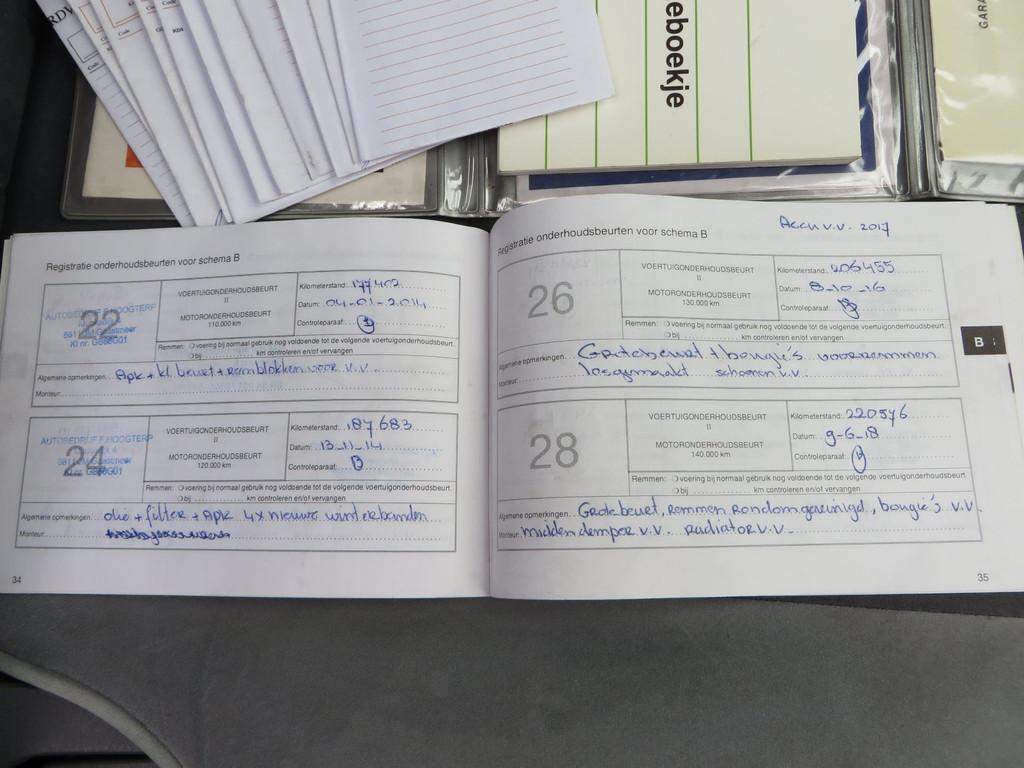 RDW
Code
Code
eboekje
GARA
Registratie onderhoudsbeurten voor schema B
22
AUTOBEDRIJF F. HOOGTERP
VOERTUIGONDERHOUDSBEURT
II
MOTORONDERHOUDSBEURT
110.000 km
Kilometerstand: 177402
Datum: 04-01-2014
Controleparaaf:
Remmen: voering bij normaal gebruik nog voldoende tot de volgende voertuigonderhoudsbeurt.
bij km controleren en/of vervangen
Algemene opmerkingen: Apk + kl. beurt + remblokken voor v.v.
Monteur:
24
AUTOBEDRIJF F. HOOGTERP
VOERTUIGONDERHOUDSBEURT
II
MOTORONDERHOUDSBEURT
120.000 km
Kilometerstand: 187683
Datum: 13-11-14
Controleparaaf:
Remmen: voering bij normaal gebruik nog voldoende tot de volgende voertuigonderhoudsbeurt.
bij km controleren en/of vervangen
Algemene opmerkingen: olie + filter + Apk 4x nieuwe winterbanden
Monteur:
34
Registratie onderhoudsbeurten voor schema B
Accu v.v. 2017
26
VOERTUIGONDERHOUDSBEURT
II
MOTORONDERHOUDSBEURT
130.000 km
Kilometerstand: 206455
Datum: 8-10-16
Controleparaaf:
Remmen: voering bij normaal gebruik nog voldoende tot de volgende voertuigonderhoudsbeurt.
bij km controleren en/of vervangen
Algemene opmerkingen: Grotebeurt + bougie's voorremmen
Monteur: losgemaakt schoenen v.v.
28
VOERTUIGONDERHOUDSBEURT
II
MOTORONDERHOUDSBEURT
140.000 km
Kilometerstand: 220576
Datum: 9-6-18
Controleparaaf:
Remmen: voering bij normaal gebruik nog voldoende tot de volgende voertuigonderhoudsbeurt.
bij km controleren en/of vervangen
Algemene opmerkingen: Grote beurt, Remmen Rondom gereinigd, bougie's v.v.
Monteur: middendemper v.v. Radiator v.v.
35
B